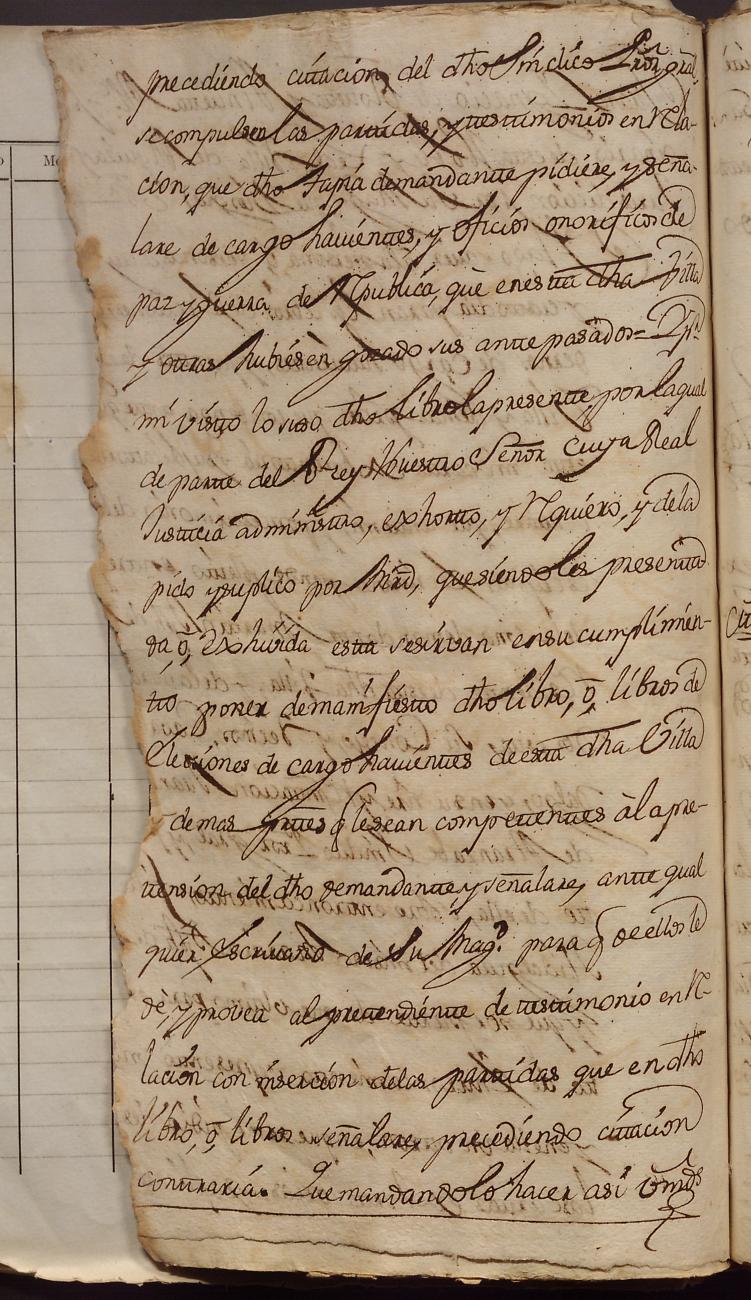 precediendo cittacion, del dho Sindico Pror gral,
se compulsen las parttidas, y testtimonios en Rla-
cion, que dho Tapia demandantte pidiere, y seña-
lare de cargo havienttes, y oficios onorificos de
paz y guerra de Republica, que en estta dha Villa
y ottras hubiesen gozado sus antte pasados=
mi vistto lo suso dho libro la presentte por la qual
de partte del Rey Nuestro Señor cuya Real
Justticia administtro, exhortto, y Rquiero, y de la
pido y suplico por Mrd, que siendoles presentta
da, ō, exhivida estta se sirvan en su cumplimien-
tto poner de manifiestto dho libro, ō, libros de
Elecciones de cargo havienttes de estta dha Villa
demas prttes q le sean compettenttes à la pre-
ttension del dho demandantte, y señalare, antte qual
quier Escrivano de Su Magd. para q de ellos le
dè, y provea al prettendientte de testtimonio en R-
lacion con inserción de las parttidas que en dho
libro, ō, libros señalare, precediendo cittacion
conttraria. Que mandandolo hacer asi Vmds